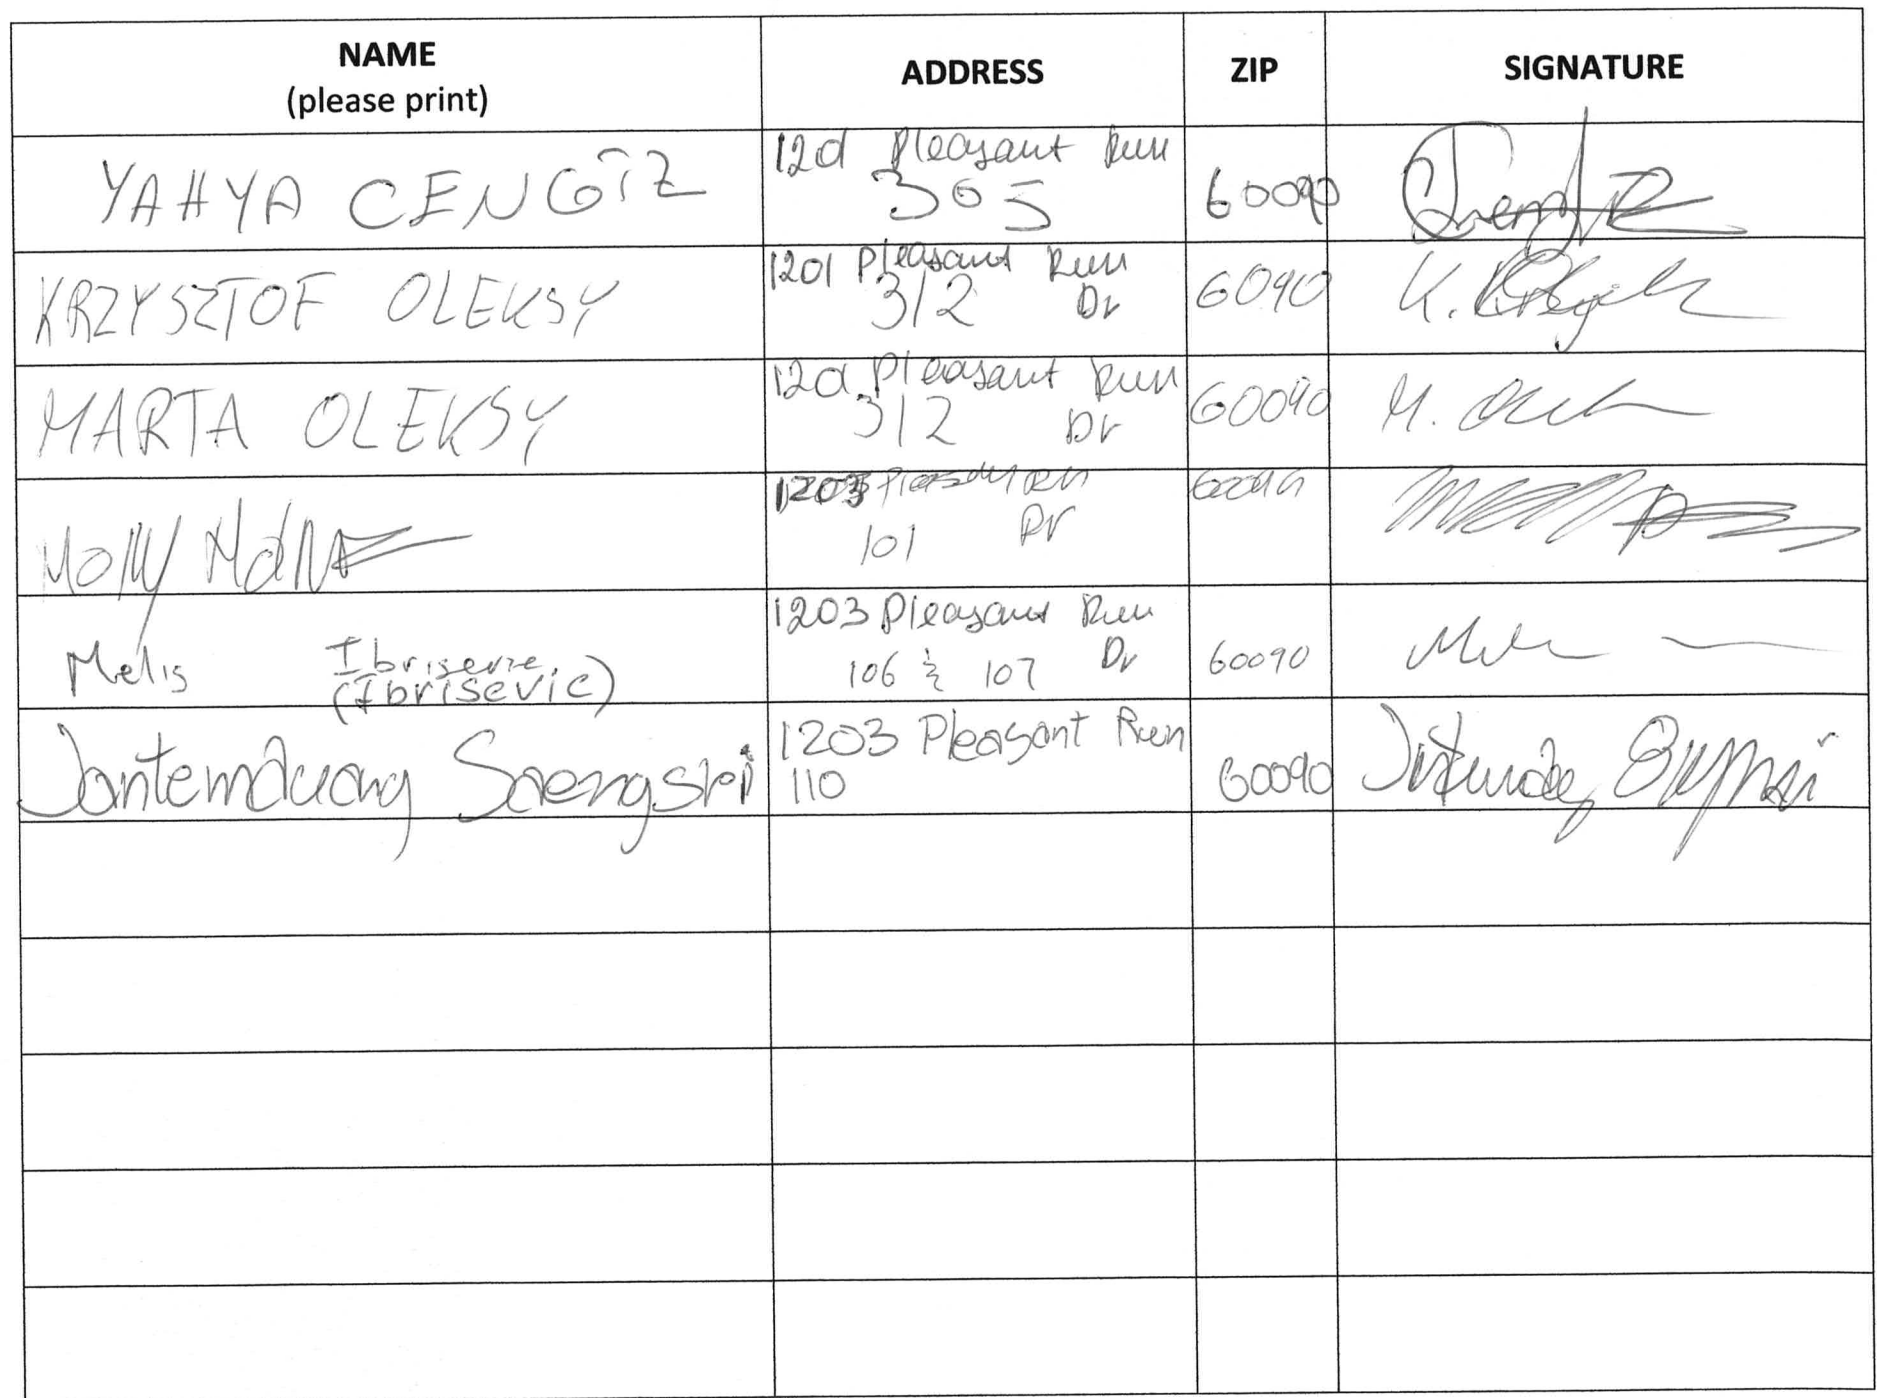 NAME
(please print)
ADDRESS
ZIP
SIGNATURE
YAHYA CENGİZ
1201 Pleasant Run
305
60090
KRZYSZTOF OLEKSY
1201 Pleasant Run
312 Dr
6090
K.
MARTA OLEKSY
1201 Pleasant Run
312 Dr
60090
M.
Molly
1203
101 Dr
Melis Ibriserie
(Ibrisevic)
1203 Pleasant Run
106 & 107 Dr
60090
Jantemduang Saengsri
1203 Pleasant Run
110
60090